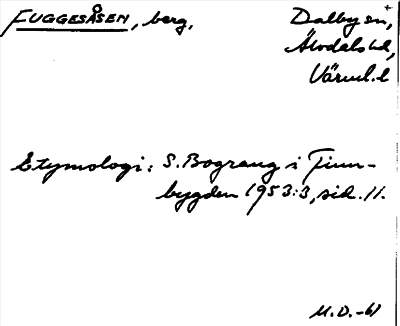 FUGGESÅSEN, berg, Dalby sn,
Älvdals hd,
Värml. l
Etymologi: S. Bograng i Finn-
bygden 1953:3, sid. 11.
M.D.-61